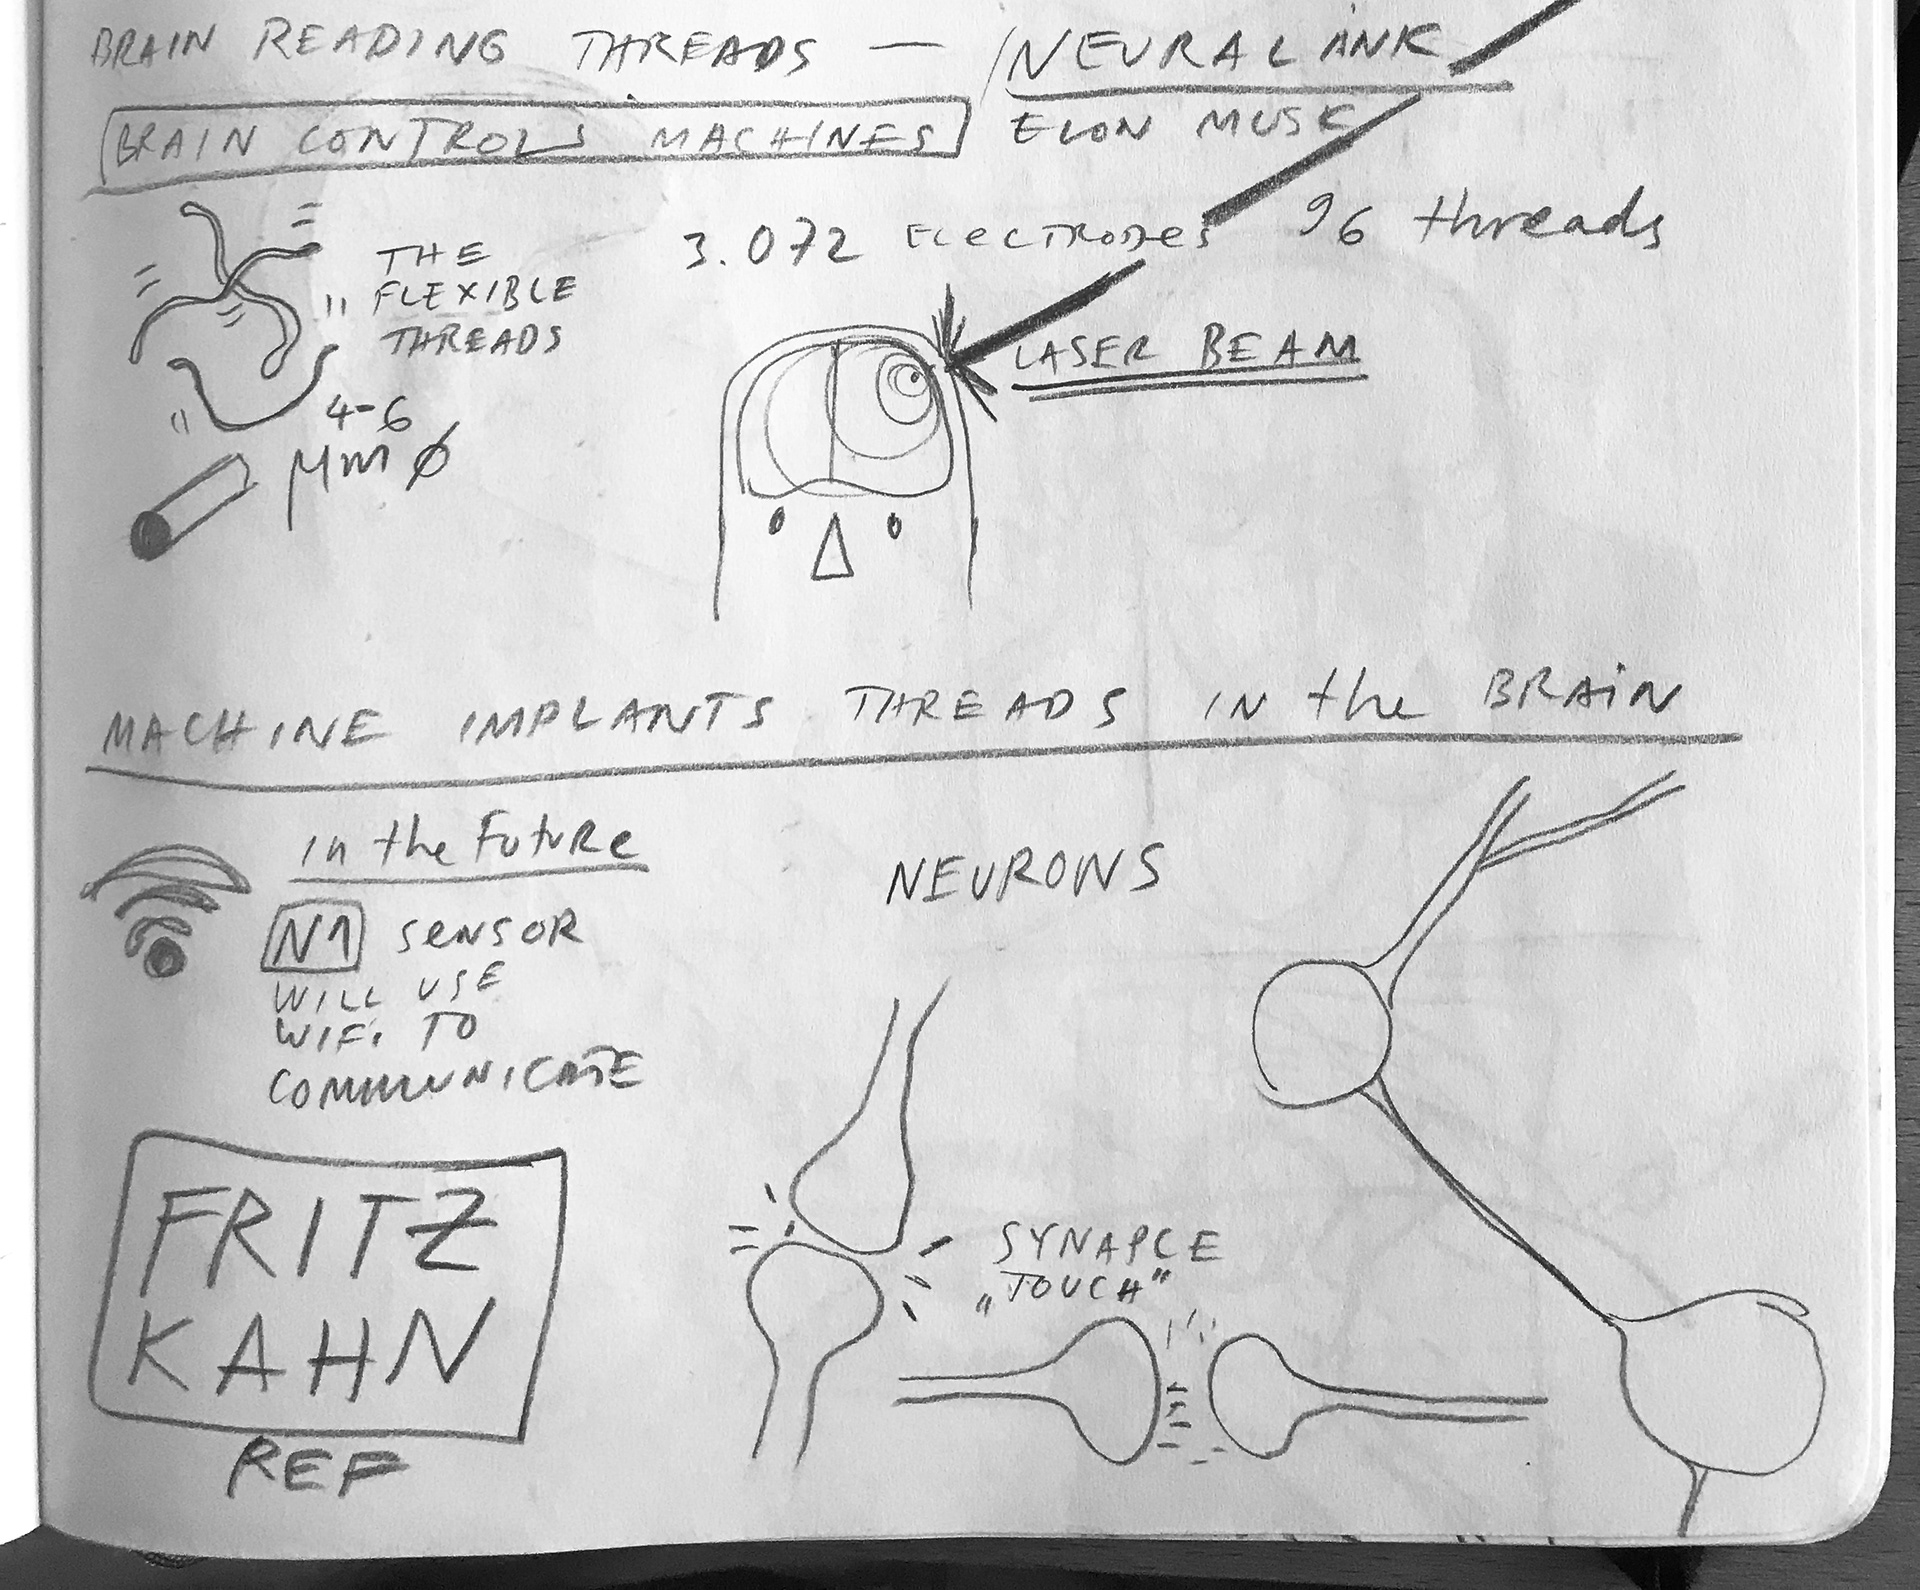 BRAIN READING THREADS — NEURALINK
BRAIN CONTROLS MACHINES
ELON MUSK
3.072 ELECTRODES 96 threads
THE
FLEXIBLE
THREADS
4-6
μm ∅
LASER BEAM
MACHINE IMPLANTS THREADS IN the BRAIN
in the Future
N1 SENSOR
WILL USE
WIFI TO
COMMUNICATE
NEURONS
SYNAPCE
„TOUCH"
FRITZ
KAHN
REF